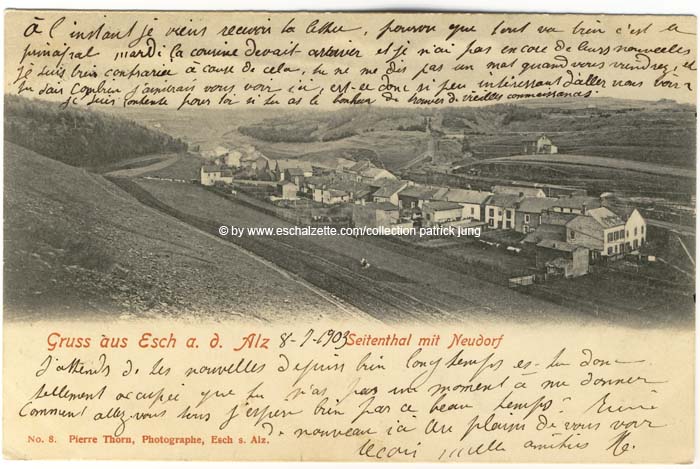 à l'instant je viens recevoir ta lettre, pourvu que tout va bien c'est le
principal mardi la cousine devait arriver et je n'ai pas encore de leurs nouvelles
je suis bien contrariée à cause de cela, tu ne me dis pas un mot quand vous viendrez, et
tu sais combien j'aimerais vous voir ici, est-ce donc si peu intéressant d'aller nous voir
je suis contente pour toi si tu as le bonheur de trouver de vieilles connaissances.
© by www.eschalzette.com/collection patrick jung
Gruss aus Esch a. d. Alz 8-7-1903 Seitenthal mit Neudorf
J'attends de tes nouvelles depuis bien longtemps es-tu donc
tellement occupée que tu n'as pas un moment à me donner
Comment allez-vous tous j'espère bien par ce beau temps?
de nouveau ici au plaisir de vous voir
reçois mille amitiés
No. 8. Pierre Thorn, Photographe, Esch s. Alz.